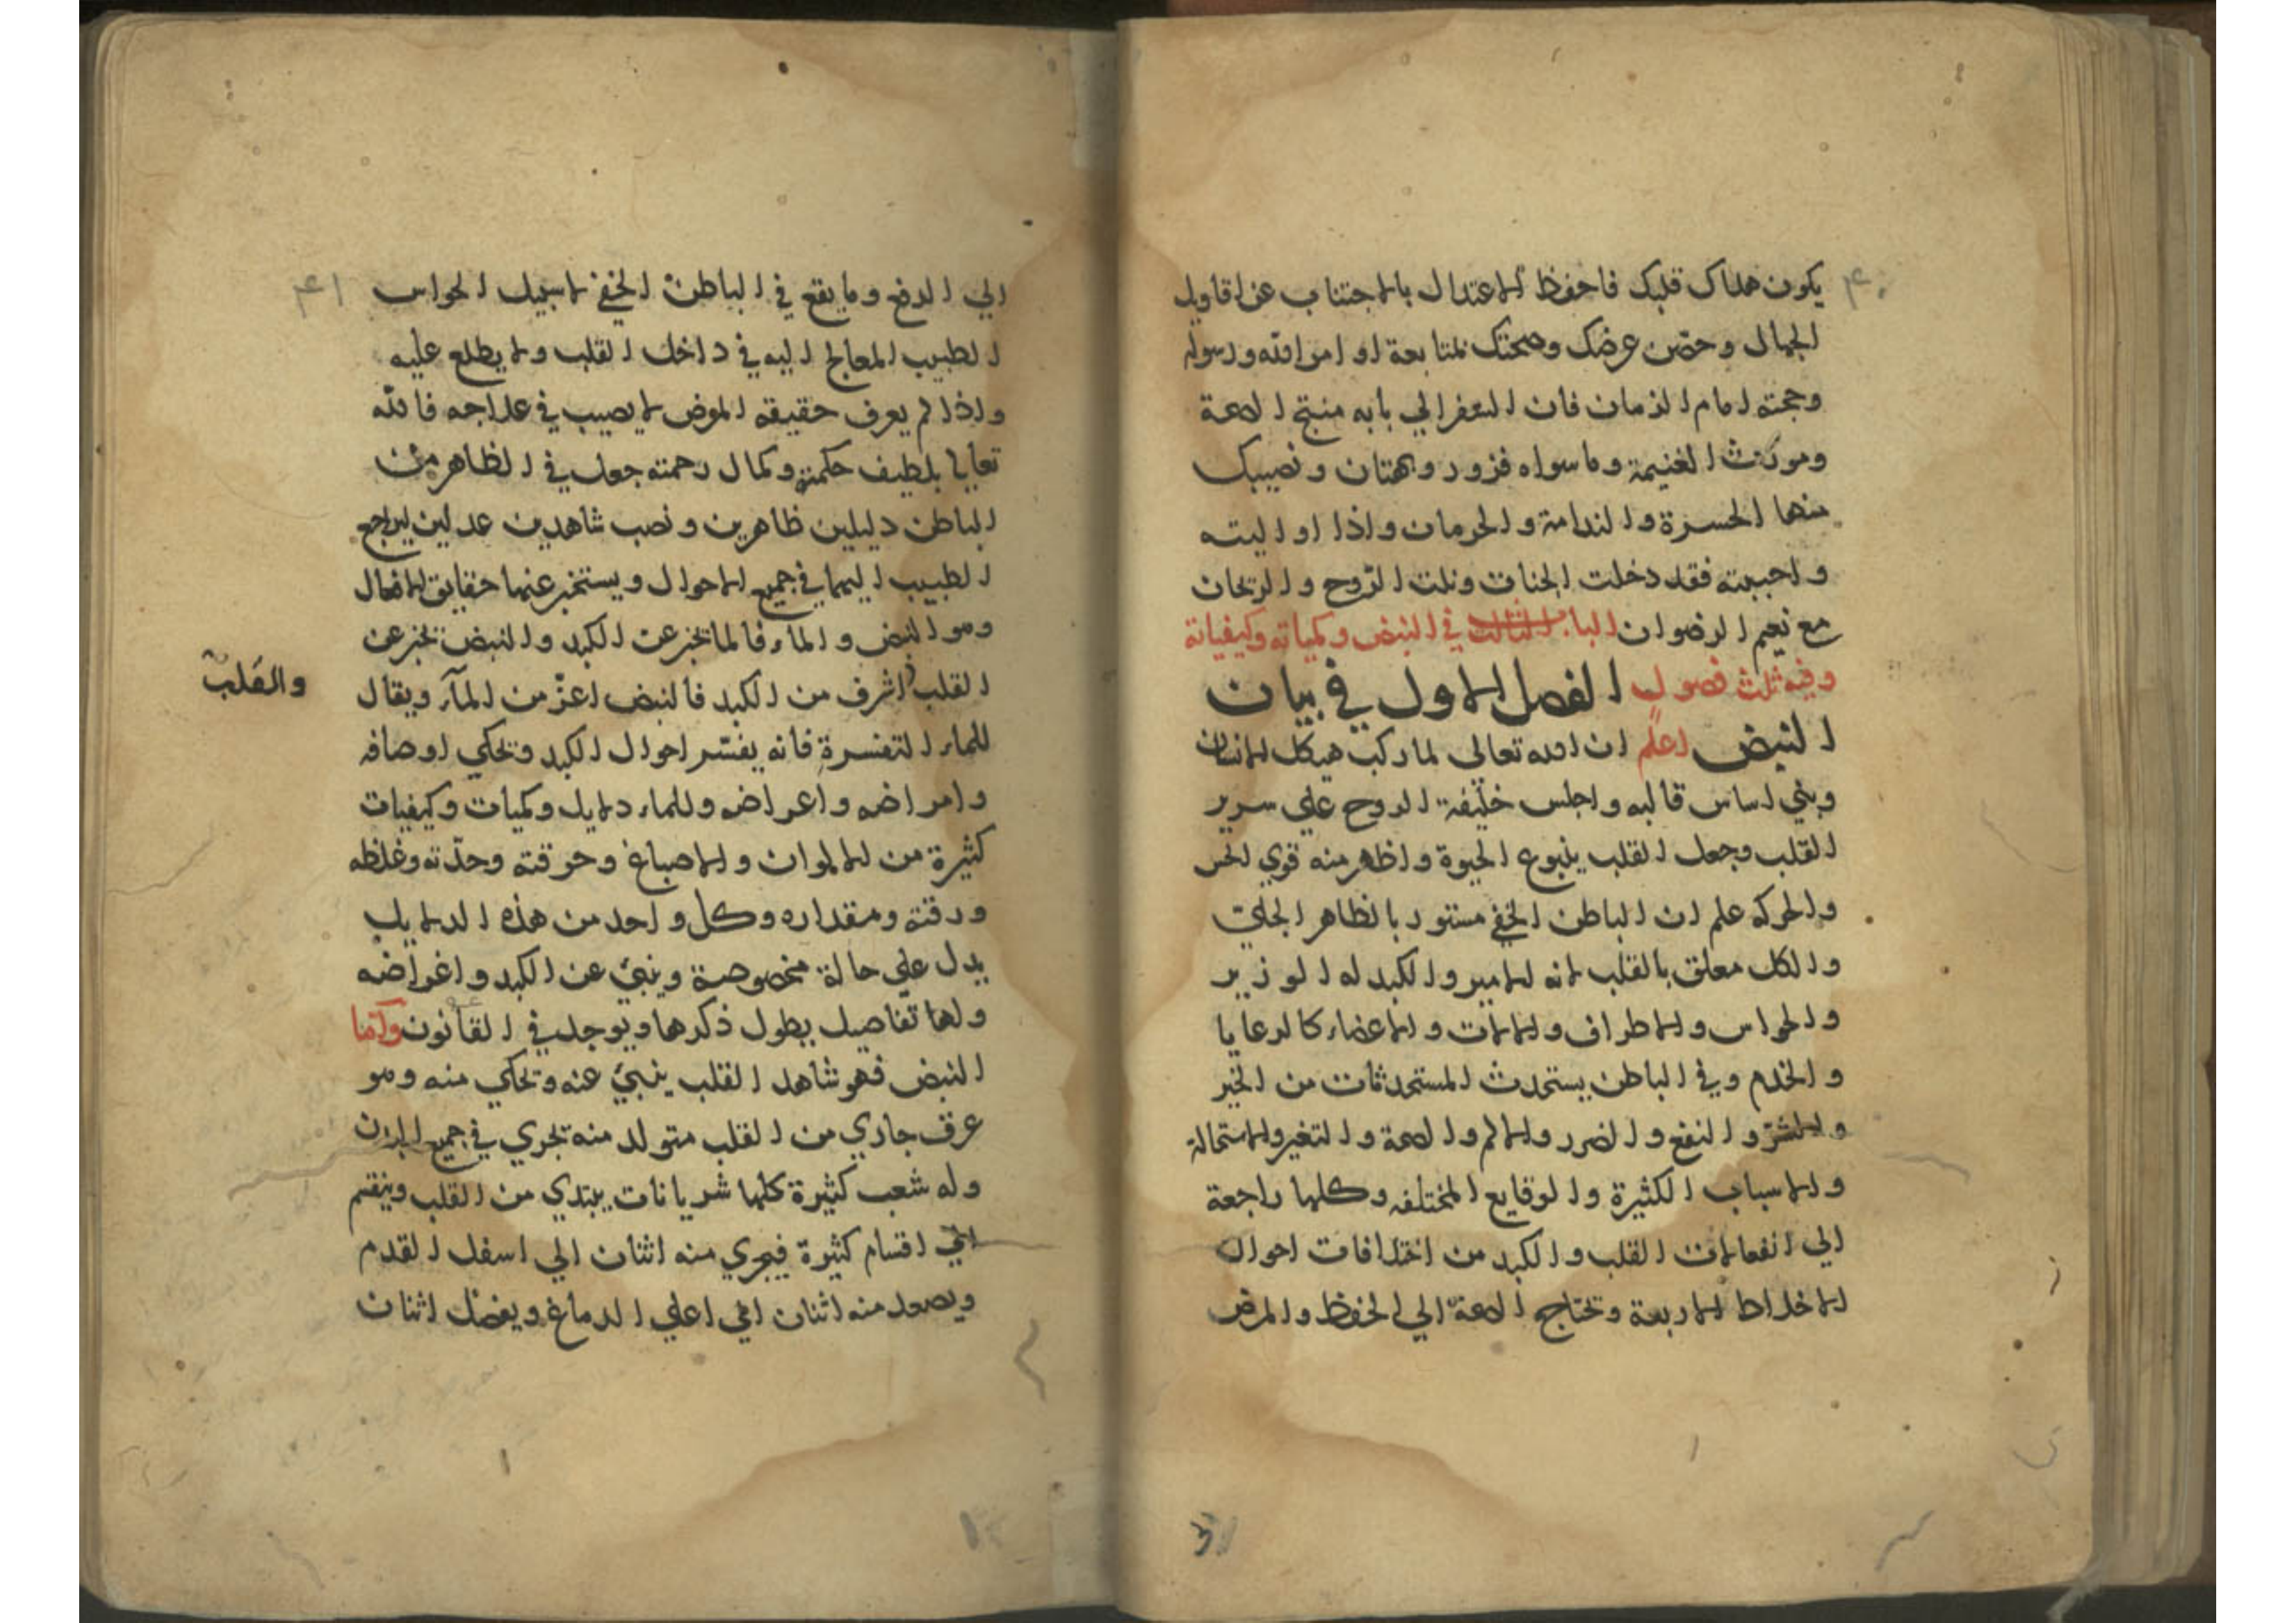 ٤٠
يكون هلاك قلبك فاحفظ الاعتدال بالاجتناب عن اقاويل
الجهال وحصّن عرضك وصحتك بمتابعة اوامر الله ورسوله
وحجته امام الزمان فان السفر الي بابه منتج الصحة
ومورث الغنيمة وما سواه فزور وبهتان ونصيبك
منها الحسرة والندامة والحرمان واذا اواليته
واحببته فقد دخلت الجنات ونلت الرّوح والريحان
مع نعيم الرضوان الباب الثالث في النبض وكمياته وكيفياته
وفيه ثلث فصول الفصل الاول في بيان
النبض اعلم ان الله تعالى لما ركب هيكل الانسان
وبني اساس قالبه واجلس خليفة الروح علي سرير
القلب وجعل القلب ينبوع الحيوة واظهر منه قوي الحس
والحركه علم ان الباطن الخفي مستور بالظاهر الجلي
والكل معلق بالقلب لانه الامير والكبد له الوزير
والحواس والاطراف والالات والاعضاء كالرعايا
والخدم وفي الباطن يستحدث المستحدثات من الخير
والشرّ والنفع والضرر والالم والصحة والتغير والاستحالة
والاسباب الكثيرة والوقايع المختلفه وكلها راجعة
الي انفعالات القلب والكبد من اختلافات احوال
الاخلاط الاربعة وتحتاج الصحة الي الحفظ والمرض
٤١
الي الدفع وما يقع في الباطن الخفي لا سبيل لحواس
الطبيب المعالج اليه في داخل القلب ولا يطلع عليه
واذا لم يعرف حقيقه المرض لا يصيب في علاجه فالله
تعالي بلطيف حكمته وكمال رحمته جعل في الظاهر من
الباطن دليلين ظاهرين ونصب شاهدين عدلين ليراجع
الطبيب اليهما في جميع الاحوال ويستخبر عنهما حقايق الافعال
وهو النبض والماء فالماء يخبر عن الكبد والنبض يخبر عن
القلب اشرف من الكبد فالنبض اعزّ من المآء ويقال
والقلب
للماء التفسرة فانه يفسّر احوال الكبد ويحكي اوصافه
وامراضه واعراضه وللماء دلايل وكميات وكيفيات
كثيرة من الالوان والاصباغ وحرقته وحدّته وغلظه
ورقته ومقداره وكل واحد من هذه الدلايل
يدل علي حالة مخصوصة وينبئ عن الكبد واغراضه
ولها تفاصيل يطول ذكرها ويوجد في القانون وامّا
النبض فهو شاهد القلب ينبئ عنه ويحكي منه وهو
عرق جاري من القلب متولد منه تجري في جميع البدن
وله شعب كثيرة كلها شريانات يبتدي من القلب وينقسم
الي اقسام كثيرة فيجري منه اثنان الي اسفل القدم
ويصعد منه اثنان الي اعلي الدماغ ويفضل اثنان